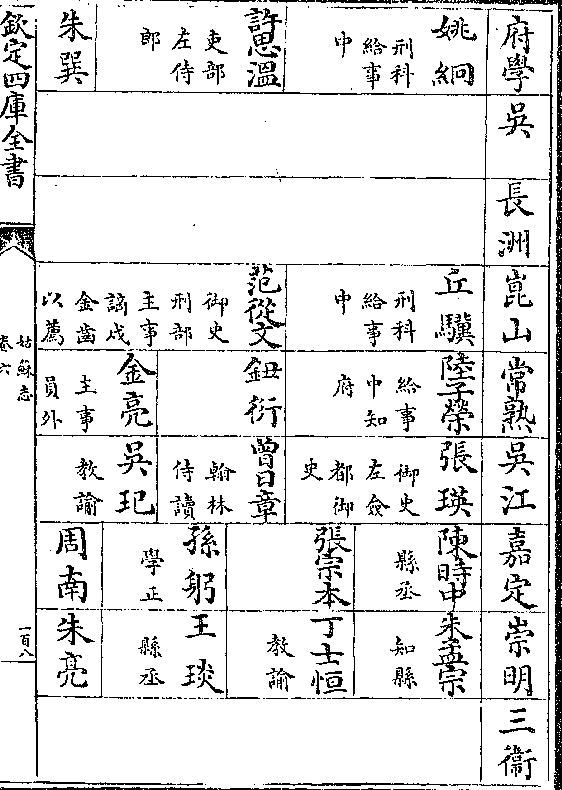 府學
吳
長洲
崑山
常熟
吳江
嘉定
崇明
三衞
姚絅
刑科
給事
中
許思溫
吏部
左侍
郎
朱巽
丘驥
刑科
給事
中
范從文
御史
刑部
主事
謫戍
金齒
以薦
陸子榮
給事
中知
府
鈕衍
金亮
主事
員外
張瑛
御史
左僉
都御
史
曾日章
翰林
侍讀
吳玘
教諭
陳時中
縣丞
張宗本
孫躬
學正
周南
朱孟宗
知縣
丁士恒
教諭
王琰
縣丞
朱亮
欽定四庫全書
姑蘇志
卷六
一百八